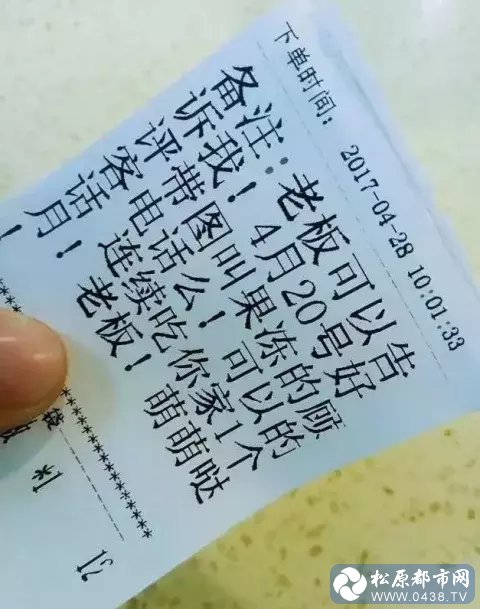 下单时间: 2017-04-28 10:01:33
备注:老板可以告
诉我!4月20号好
评带图叫果冻的顾
客电话么!可以的
话月!连续吃你家1个
!老板!萌萌哒
*1
12
松原都市网
WWW.0438.TV